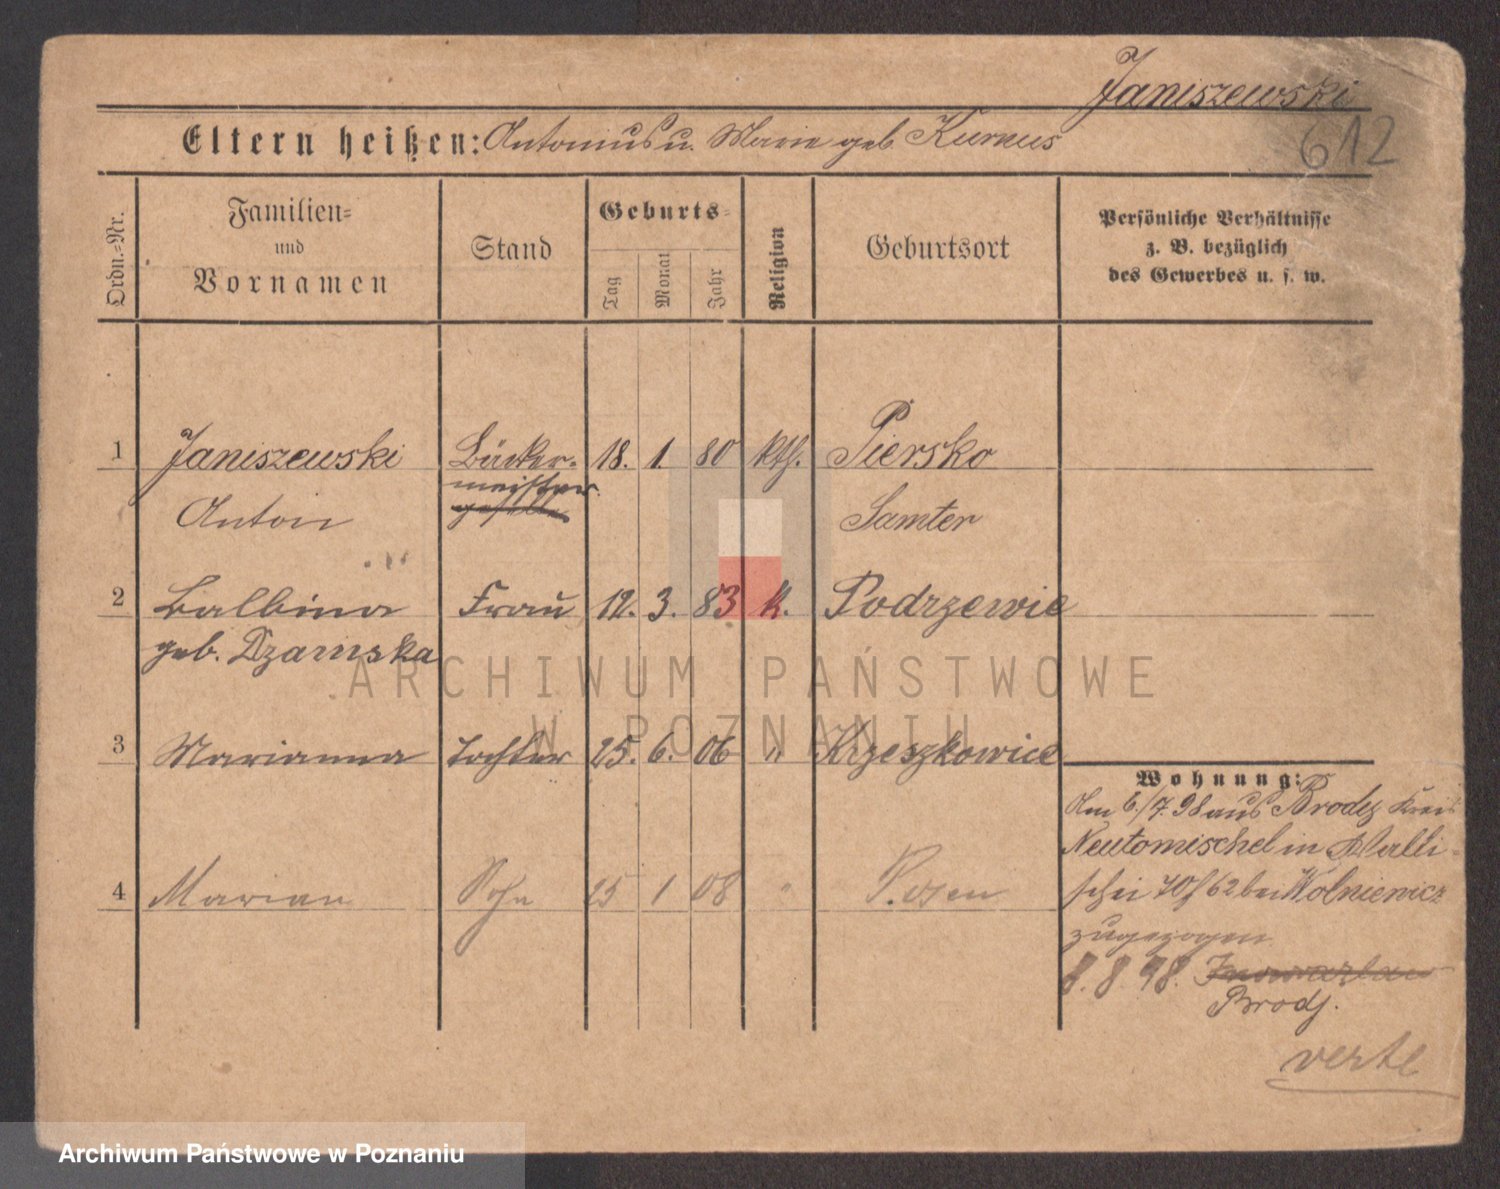 Janiszewski
612
Eltern heißen: Antonius u. Marie geb. Kurnus
Ordn.-Nr.
Familien-
und
Vornamen
Stand
Geburts-
Tag
Monat
Jahr
Religion
Geburtsort
Persönliche Verhältnisse
z. B. bezüglich
des Gewerbes u. s. w.
1 Janiszewski Bäcker- 18. 1. 80 kth. Piersko
meister
geselle
Anton Samter
2 Balbina Frau 12. 3. 83 k. Podrzewie
geb. Dzamska
3 Marianna Tochter 25. 6. 06 " Krzeszkowice
4 Marian Sohn 25 1 08 " Posen
Wohnung:
Am 6/7. 98 aus Brody Kreis
Neutomischel in Walli-
schei 70/62 bei Wolniewicz
zugezogen
8. 8. 98. Inowrazlaw
Brody.
verte
ARCHIWUM PAŃSTWOWE
W POZNANIU
Archiwum Państwowe w Poznaniu